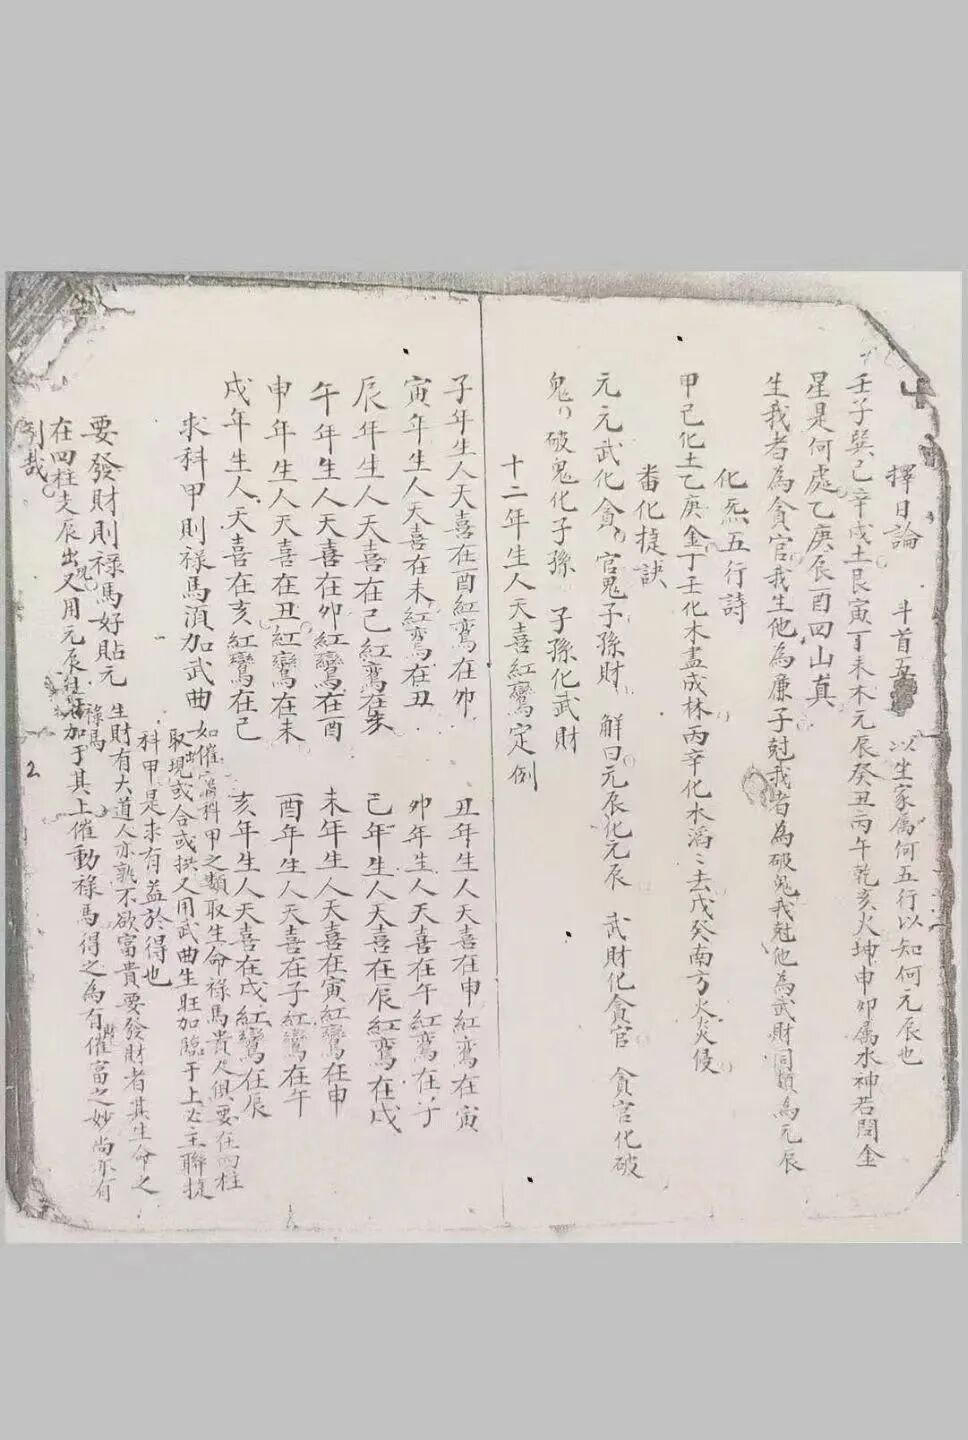 擇日論　斗首五　以坐家属何五行以知何元辰也
壬子巽巳辛戌土艮寅丁未木元辰癸丑丙午乾亥火坤申卯属水神若問金
星是何處乙庚辰酉四山真
生我者為貪官我生他為廉子尅我者為破鬼我尅他為武財同類為元辰
化炁五行詩
甲己化土乙庚金丁壬化木盡成林丙辛化水滔〻去戊癸南方火炎侵
番化捷訣
元元武化貪〻官鬼子孫財　解曰元辰化元辰　武財化貪官　貪官化破
鬼〻破鬼化子孫　子孫化武財
十二年生人天喜紅鸞定例
子年生人天喜在酉紅鸞在卯　丑年生人天喜在申紅鸞在寅
寅年生人天喜在未紅鸞在丑　卯年生人天喜在午紅鸞在子
辰年生人天喜在巳紅鸞在亥　巳年生人天喜在辰紅鸞在戌
午年生人天喜在卯紅鸞在酉　未年生人天喜在寅紅鸞在申
申年生人天喜在丑紅鸞在未　酉年生人天喜在子紅鸞在午
戌年生人天喜在亥紅鸞在巳　亥年生人天喜在戌紅鸞在辰
求科甲則祿馬湏加武曲
如催官科甲之類取生命祿馬貴人俱要在四柱
取出現或合或拱又用武曲生旺加臨于上必主聯捷
科甲是求有益於得也
要發財則祿馬好貼元
生財有大道人亦孰不欲富貴要發財者其生命之
祿馬
在四柱支辰出現又用元辰加于其上催動祿馬得之為有催富之妙尚亦有
利哉
2